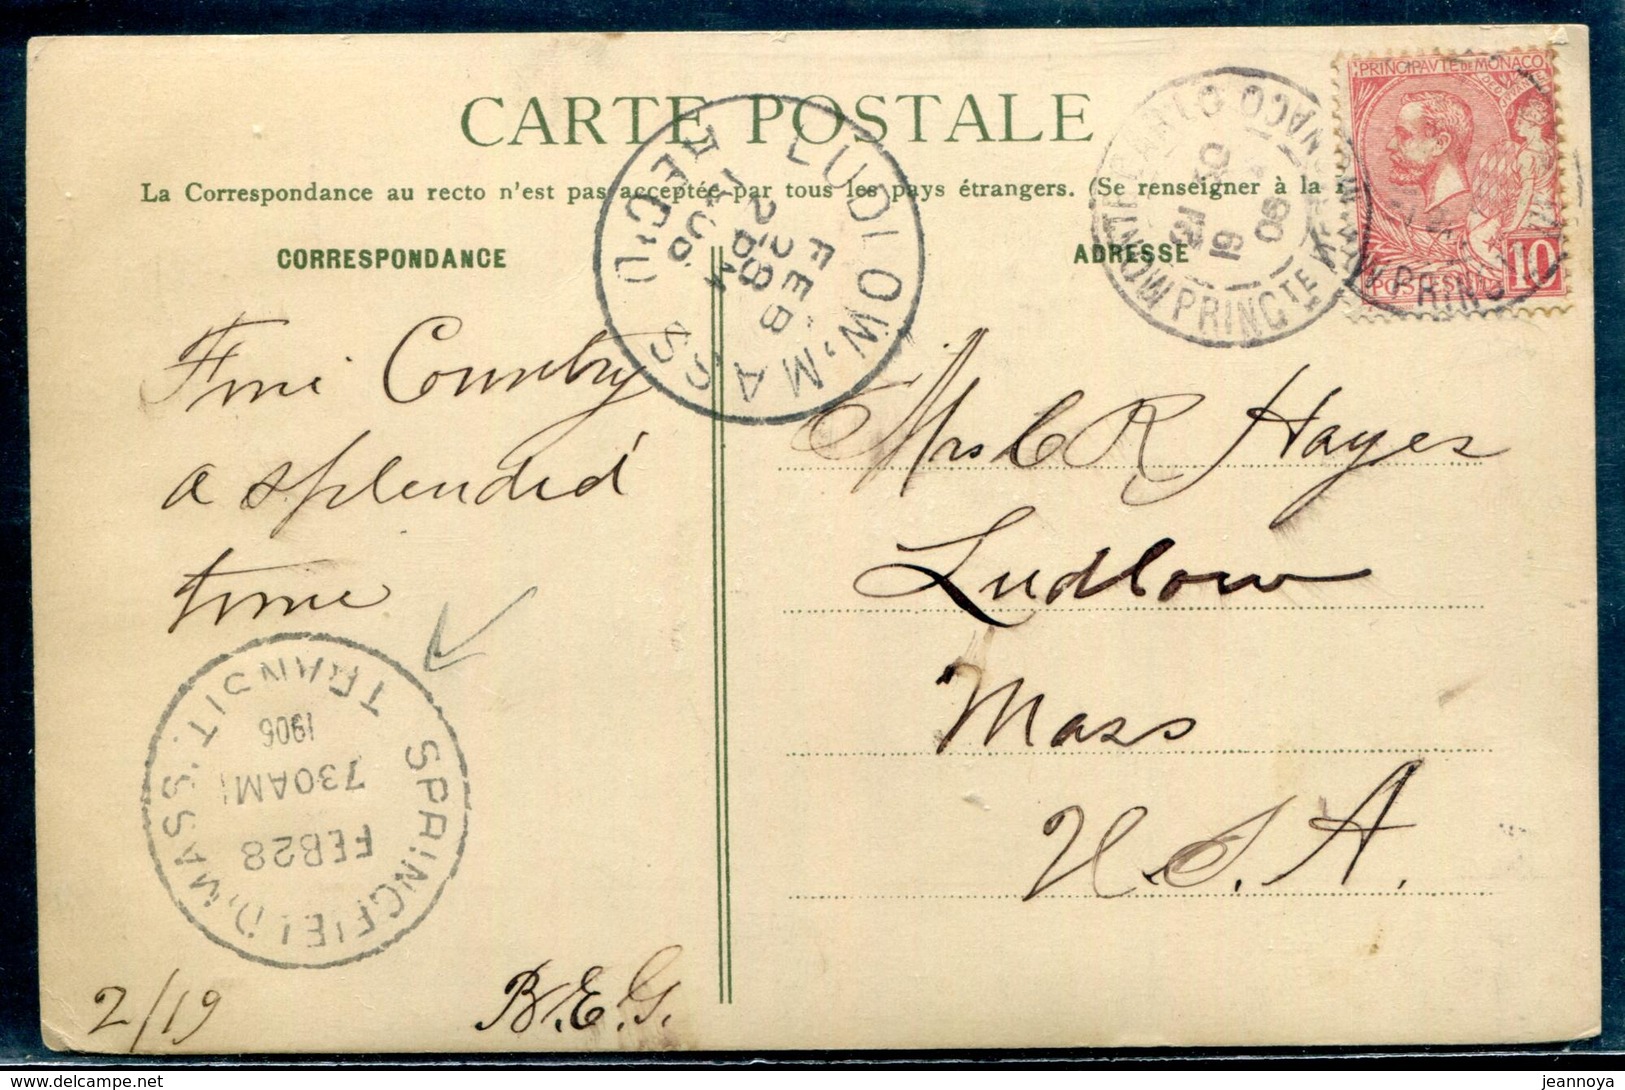 CARTE POSTALE
La Correspondance au recto n'est pas acceptée par tous les pays étrangers. (Se renseigner à la
CORRESPONDANCE
ADRESSE
PRINCIPAVTE DE MONACO
POSTES
10
MONTE
MONACO
PRINCTE
19
06
LUDLOW, MASS
REC'D
FEB
28
PM
Fine Country
a splendid
time
Mrs C R Hayes
Ludlow
Mass
U.S.A.
SPRINGFIELD, MASS. TRANSIT
FEB 28
7 30 AM
1906
2/19
B.E.G.
jeannoya